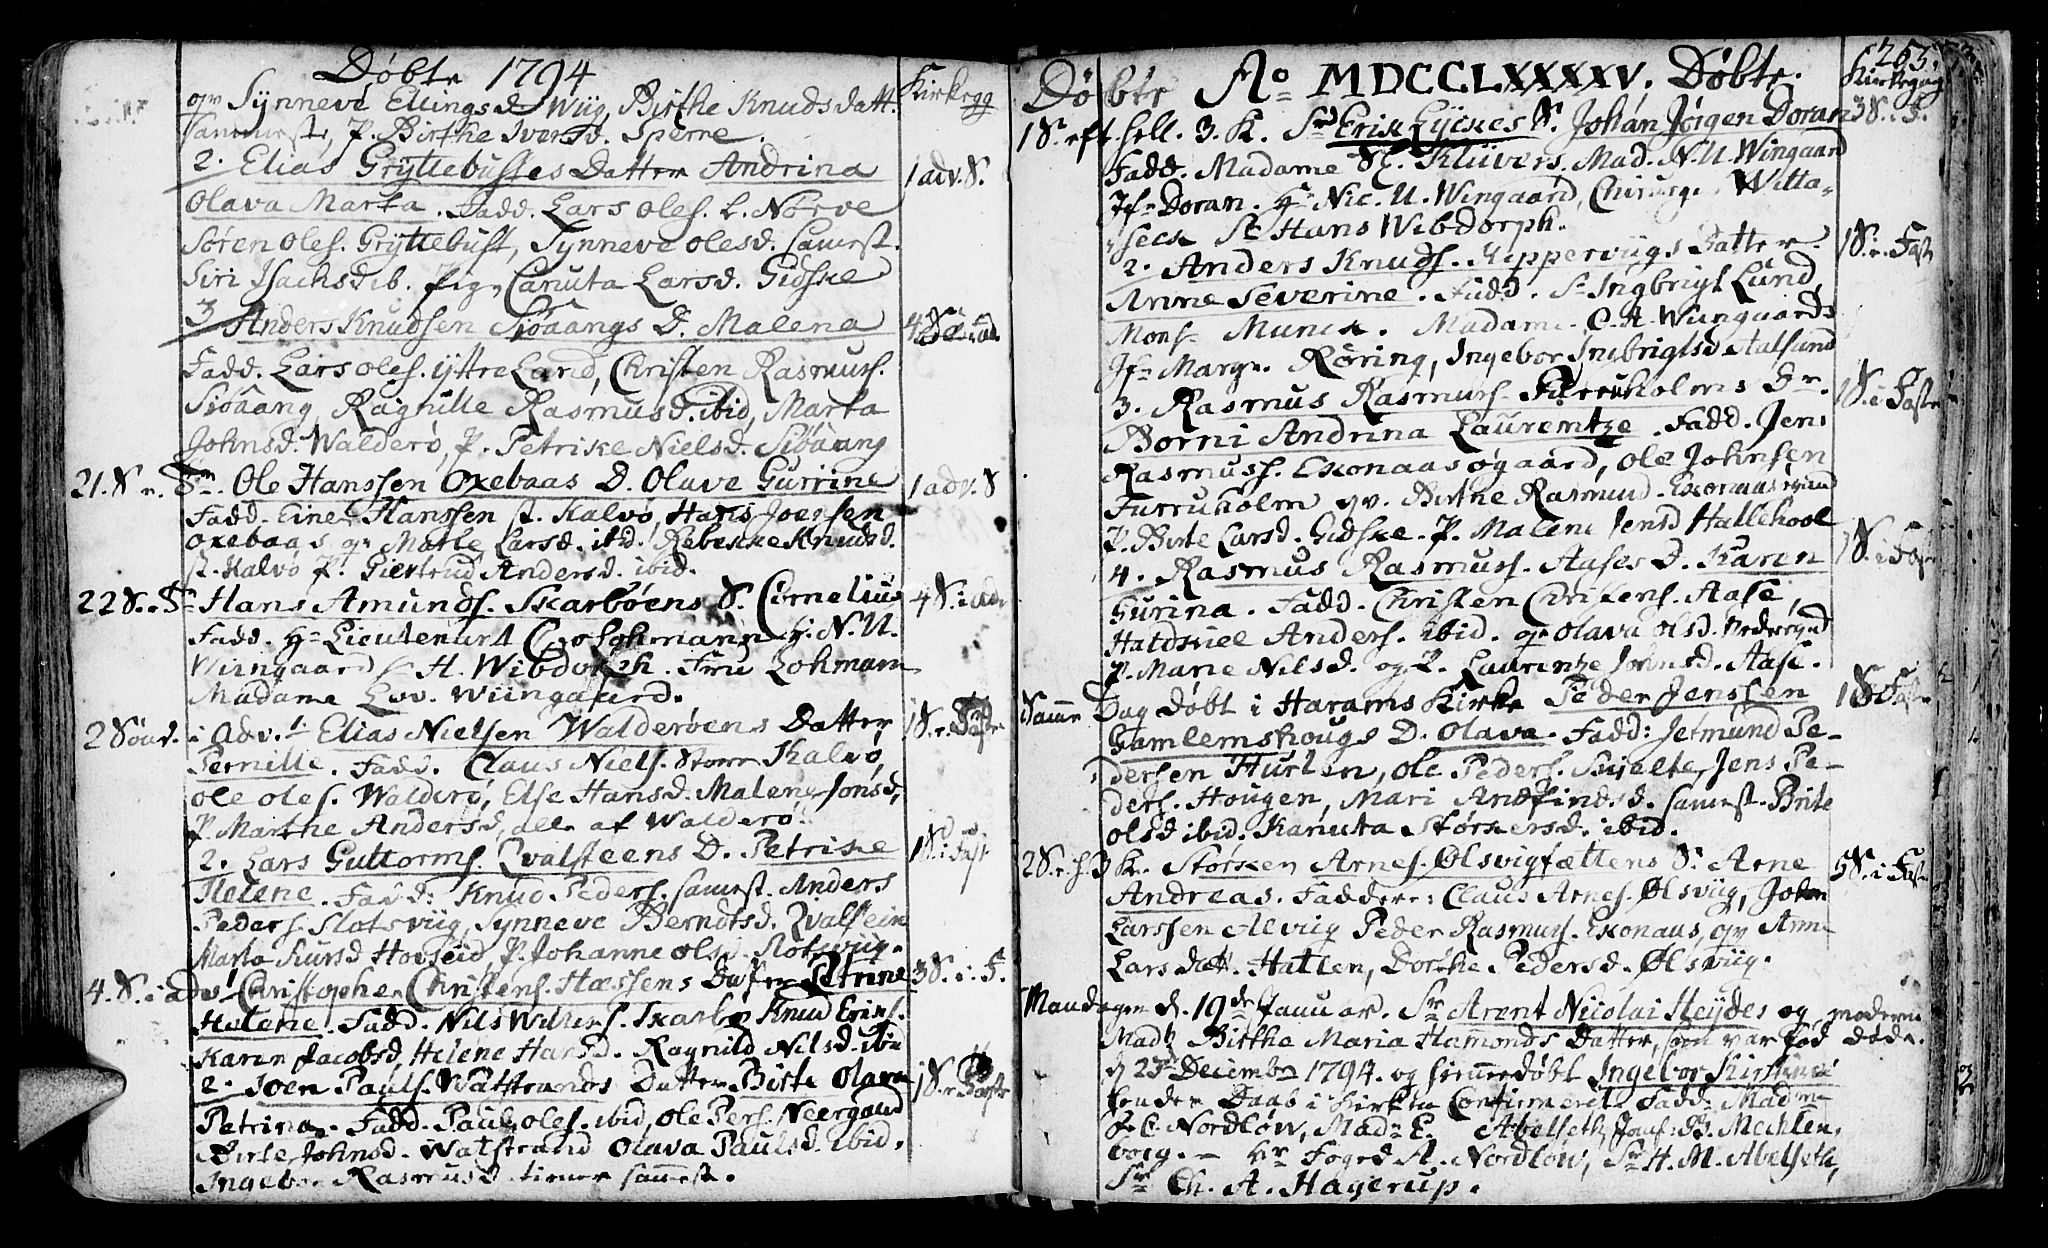 Døbte 1794
Kirkegg
og Synneve Ellingsd. Wiig, Birthe Knudsdatt.
sammest. P. Birthe Iversd. Sperre.
2. Elias Gryttebusts Datter Andrina
1 adv. S.
Olava Marta. Fadd. Lars Oles. l. Nørve
Søren Oles. Gryttebust, Synneve Olesd. samest.
Siri Isachsd ib. Pig. Canuta Larsd. Gidske
3 Anders Knudsen Siøaangs D. Malena
Fadd. Lars Oles. yttre Land, Christen Rasmuss.
Siøaang, Ragnille Rasmusd. ibid, Marta
Johnsd. Walderø, P. Petrike Nielsd. Siøaang
21. S. n. Tr. Ole Hanssen Oxebaas D. Olave Gurrine
1 adv. S
Fadd. Einer Hanssen st. Kalvø, Hans Joensen
Oxebaas og Marte Larsd. ibd. Rebekke Knudsd.
st. Kalvø P. Giertrud Andersd. ibid.
22 S. n. Tr Hans Amunds. Skarbøens S. Cornelius
4 S. i adv
Fadd. Hr Lieutenant Lohmann H. N. U.
Wiingaard H. Wibdorph. Frue Lohmann
Madame Lov. Wiingaard.
2 Sønd. i Adv. 1. Elias Nielsen Walderøens Datter
1 S. i Faste
Pernille. Fadd. Claus Niels. Store Kalvø,
Ole Oles. Walderø, Else Hansd. Malene Jonsd,
P. Marthe Andersd, alle af Walderø.
2. Lars Guttorms. Qvalsteens D. Petrike
1 S. i Fast
Helene. Fadd: Knud Peders. samest. Anders
Peders. Slotsviig, Synneve Berndtsd. Qvalstein
Marta Siursd Hovseid, P. Johanne Olsd. Slotsviig.
4. S. i adv Christopher Christens. Hæssens Datter Petrine
3 S. i. F.
Helene. Fadd. Nils Willums. Skarbø Knud Eriks.
Karen Jacobsd, Helene Hansd. Ragnild Nilsd. ibid
2. Joen Pauls. Watstrands Datter Birte Olava
1 S. i Faste
Petrina. Fadd. Paul Oles. ibid, Ole Pers. Neergaard
Birte Johnsd. Watstrand Olava Paulsd. ibid,
Ingebor Rasmusd. tiener samest.
Døbte Ao MDCCLXXXXV. Døbte.
263.
Kirkegng
1 S. eft. hell. 3. K. Sr Erik Eyckes S. Johan Jørgen Doran
3 S. i. F.
Fadd. Madame Kluvers, Mad. N. U. Wingaard
Jfr Doran. Hr Nic. U. Wingaard, Chirurg. Witta-
seck Sr Hans Wibdorph.
2. Anders Knuds. Kippervigs Datter
1 S. i. Fast
Anne Severine. Fadd. Sr Ingbrigt Lund,
Monsr Munck. Madame C. A. Wiingaards
Jfr Margr. Røring, Ingebor Ingbrigtsd Aalsund
3. Rasmus Rasmuss. Furruholms Dr.
1 S. i Faste
Borni Andrina Laurentze. Fadd. Jens
Rasmuss. Exonaas øgaard, Ole Johnsen
Furruholm og Birthe Rasmusd. Exonaas
P. Birte Larsd. Gidske. P. Malene Jensd Hallehool
4. Rasmus Rasmuss. Aases D. Karen
1 S. i Fast
Gurina. Fadd. Christen Christens. Aase,
Haldskiel Anders. ibid. og Olava Olsd.
P. Marie Nilsd. og P. Laurentze Johnsd. Aase.
Samme Dag døbt i Harams Kirke Peder Jenssen
1 S. i Faste
Gamlemshougs D. Olava. Fadd: Jetmund Pe-
dersen Hurlen, Ole Peders. Skjelte, Jens Pe-
ders. Hougen, Mari Andfindsd. samest. Brite
Olsd ibid. Kanuta Størkersd. ibid.
2 S. e. h. 3 K. Størken Arnes. Ølsvigfættens S. Arne
5 S. i Fast
Andreas. Faddere: Claus Arnes. Ølsviig, John
Larssen Alvig Peder Rasmuss. Exonaas, og Anne
Larsdatt. Hatlen, Dorthe Pedersd. Ølsviig.
Mandagen d. 19de Januar. Sr Arent Nicolai Heydes og
moderen
Made Birthe Maria Hamonds Datter, som var fød
døde.
d 23de December 1794. og hiemmedøbt Ingebor Kirstine
hendes Daab i Kirken Confirmeret. Fadd. Madme
F. C. Nordløw, Madr E. Abelseth, Jomf. B. Mechlen,
borg. - Hr Foged A. Nordløw, Sr H. M. Abelseth,
Sr Ch. A. Hagerup.